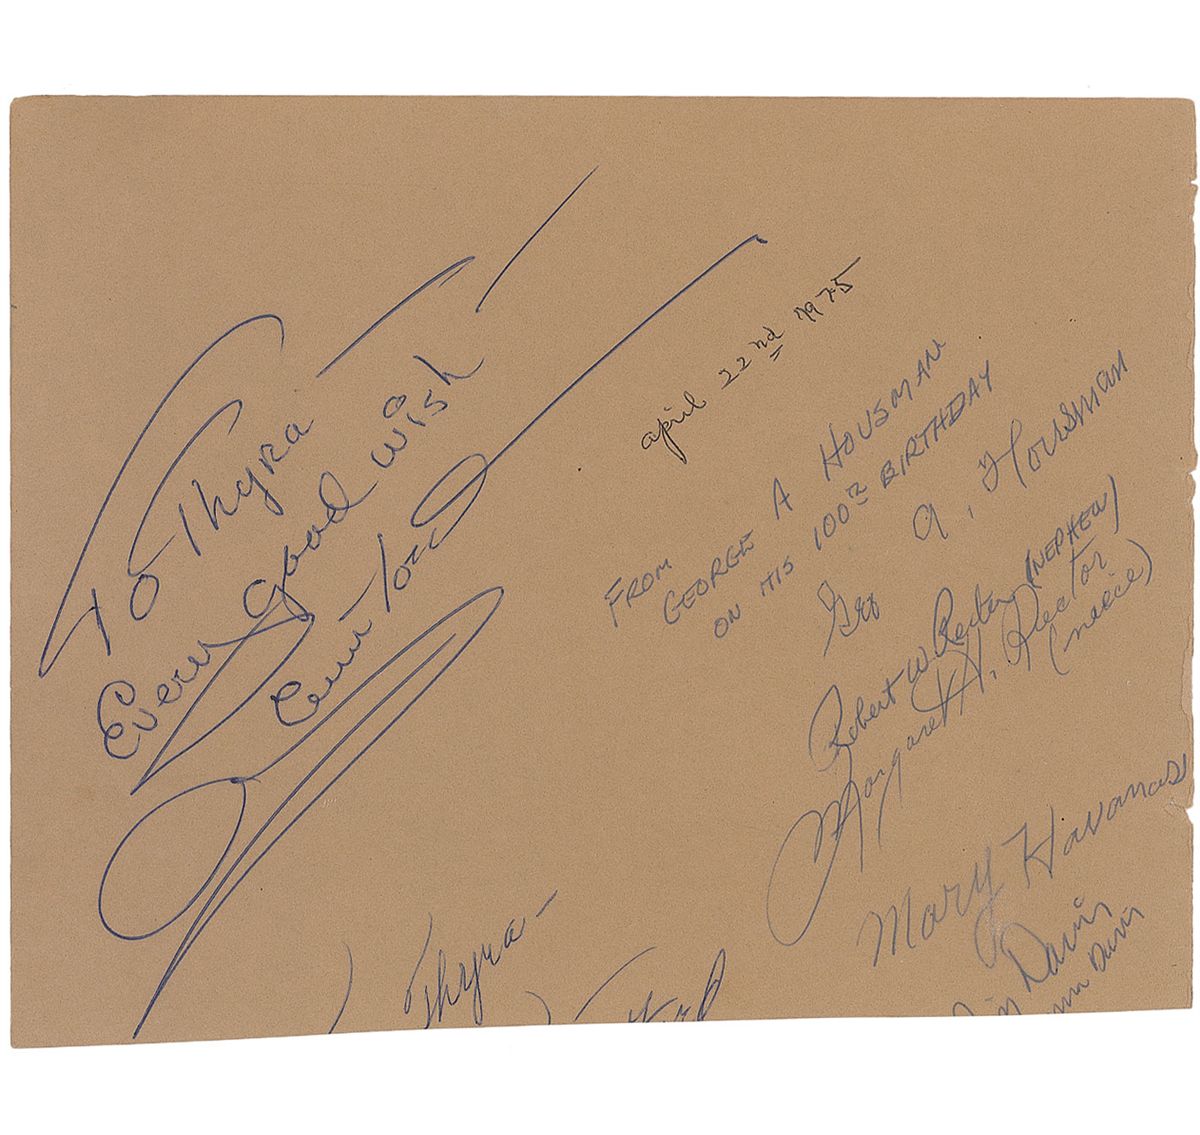 To Thyra
Every good wish
april 22nd 1975
FROM
GEORGE A HOUSMAN
ON HIS 100th BIRTHDAY
Geo a. Housman
Robert W Rector (NEPHEW)
Margaret H. Rector
(niece)
MARY Havanas
Davis
Davis
Thyra -